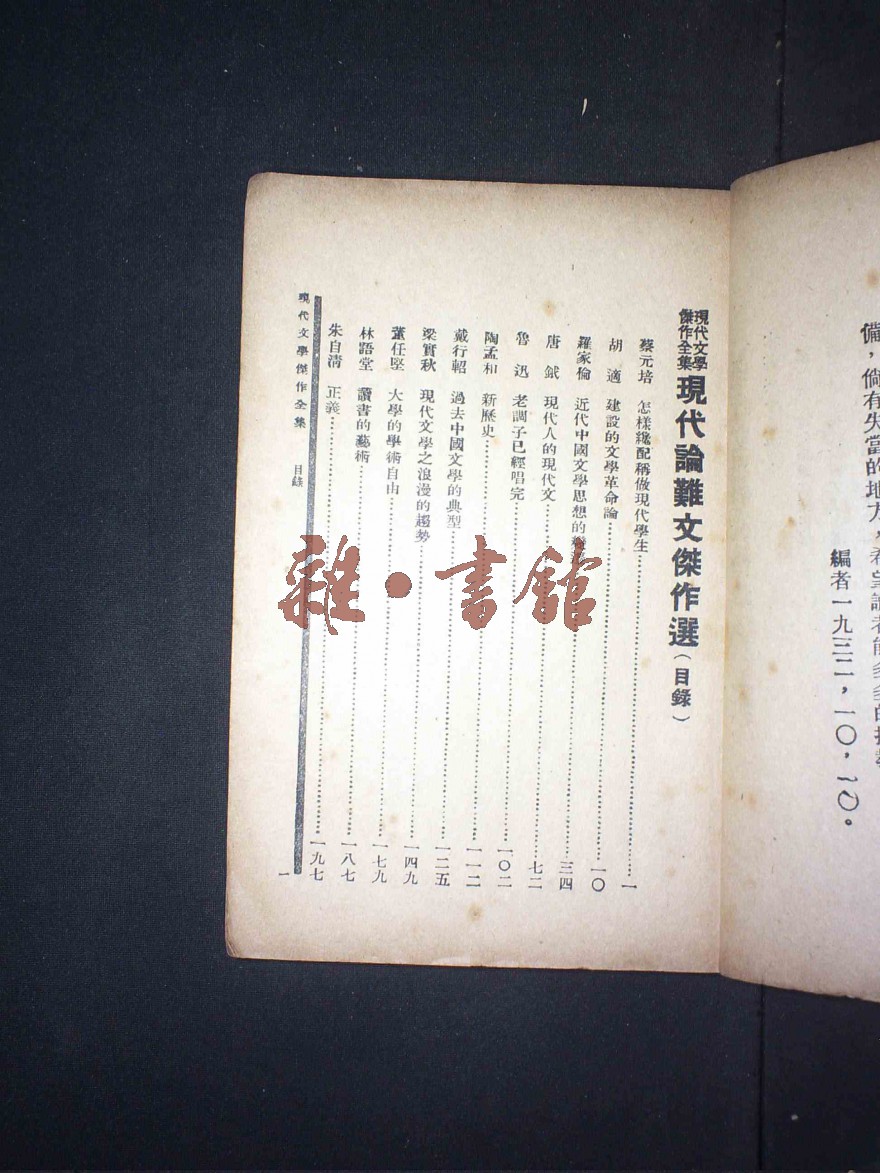 備，倘有失當的地方，希望讀者能多多的指教
編者一九三二，一〇，二〇。
現代文學
傑作全集
現代論難文傑作選（目錄）
蔡元培　怎樣纔配稱做現代學生…………一
胡　適　建設的文學革命論…………一〇
羅家倫　近代中國文學思想的…………三四
唐　鉞　現代人的現代文…………七二
魯　迅　老調子已經唱完…………一〇二
陶孟和　新歷史…………一一二
戴行軺　過去中國文學的典型…………一二五
梁實秋　現代文學之浪漫的趨勢…………一四九
董任堅　大學的學術自由…………一七九
林語堂　讀書的藝術…………一八七
朱自清　正義…………一九七
現代文學傑作全集　目錄　一
雜·書館